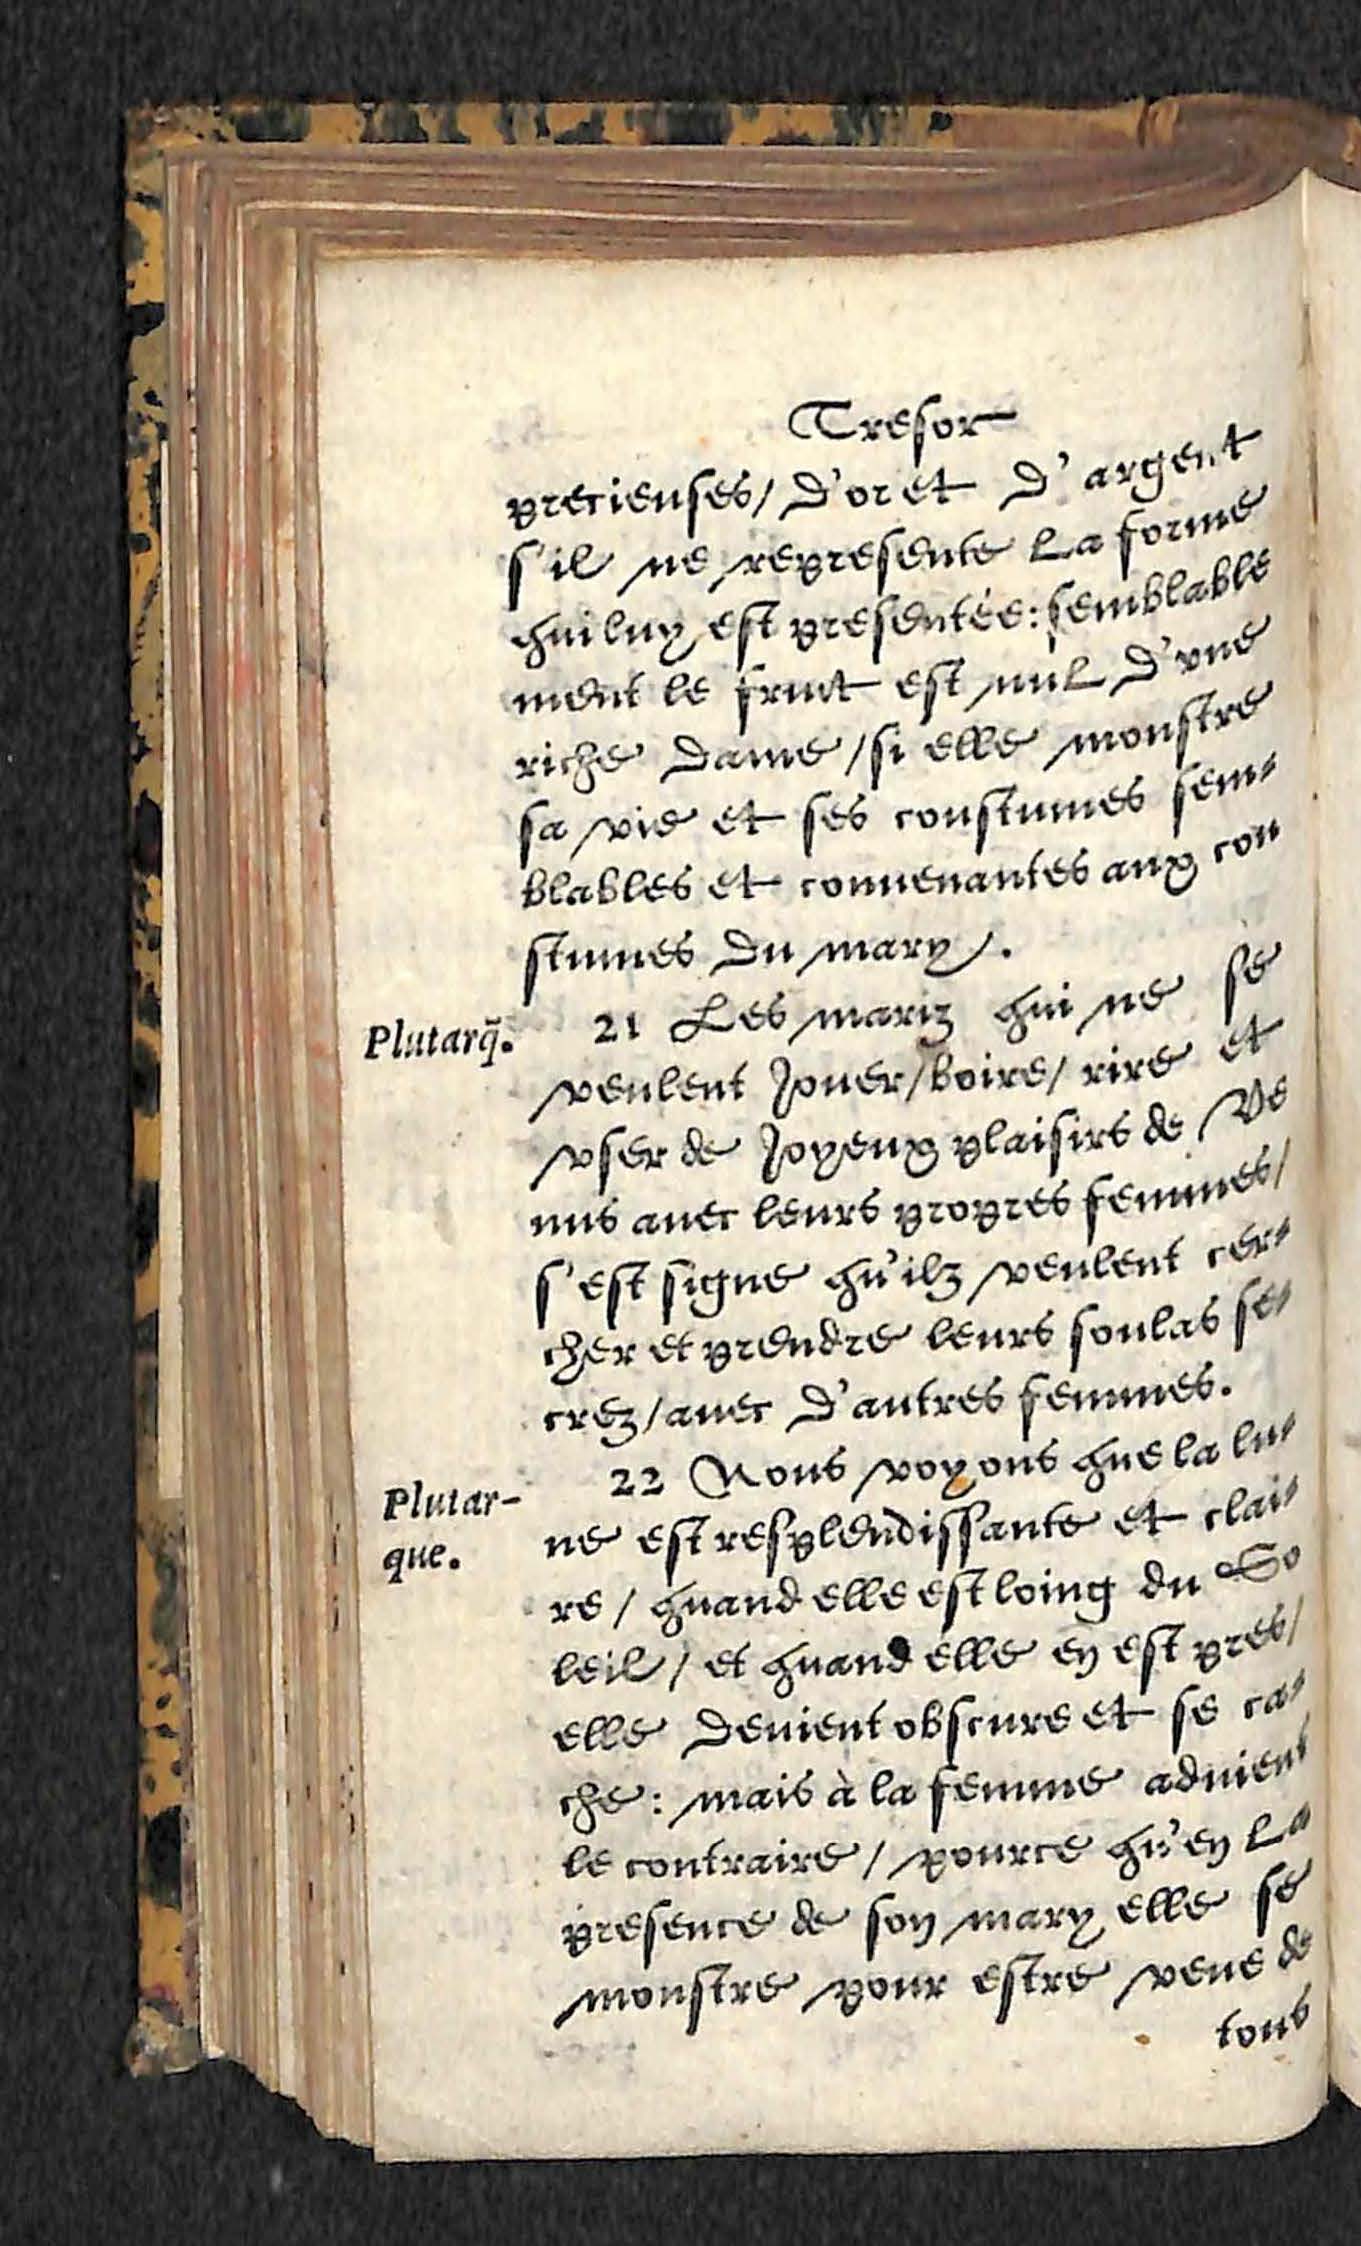 Tresor
precieuses/ d'or et d'argent
s'il ne represente la forme
qui luy est presentée: semblable
ment le fruict est nul d'vne
riche dame/ si elle monstre
sa vie et ses coustumes sem-
blables et conuenantes aux cou
stumes du mary.
Plutarq̃.
21 Les mariz qui ne se
veulent jouer/ boire/ rire et
vser de joyeux plaisirs de Ve
nus auec leurs propres femmes/
s'est signe qu'ilz veulent cer-
cher et prendre leurs soulas se-
crez/ auec d'autres femmes.
Plutar-
que.
22 Nous voyons que la lu-
ne est resplendissante et clai-
re/ quand elle est loing du So
leil/ et quand elle en est pres/
elle deuient obscure et se ca-
che: mais à la femme aduient
le contraire/ pource qu'en la
presence de son mary elle se
monstre pour estre veue de
tous